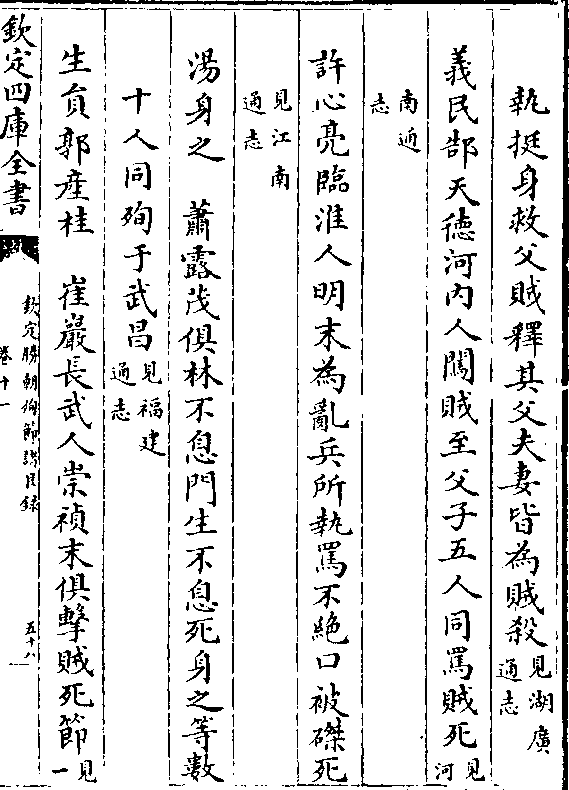 執挺身救父賊釋其父夫妻皆為賊殺見湖廣通志
義民郜天德河内人闖賊至父子五人同罵賊死見河
南通志
許心亮臨淮人明末為亂兵所執罵不絶口被磔死
見江南通志
湯身之　蕭露茂俱林不息門生不息死身之等數
十人同殉于武昌見福建通志
生貟郭産桂　崔巖長武人崇禎末俱擊賊死節見一
欽定四庫全書
欽定勝朝殉節諸臣錄
卷十一
五十八